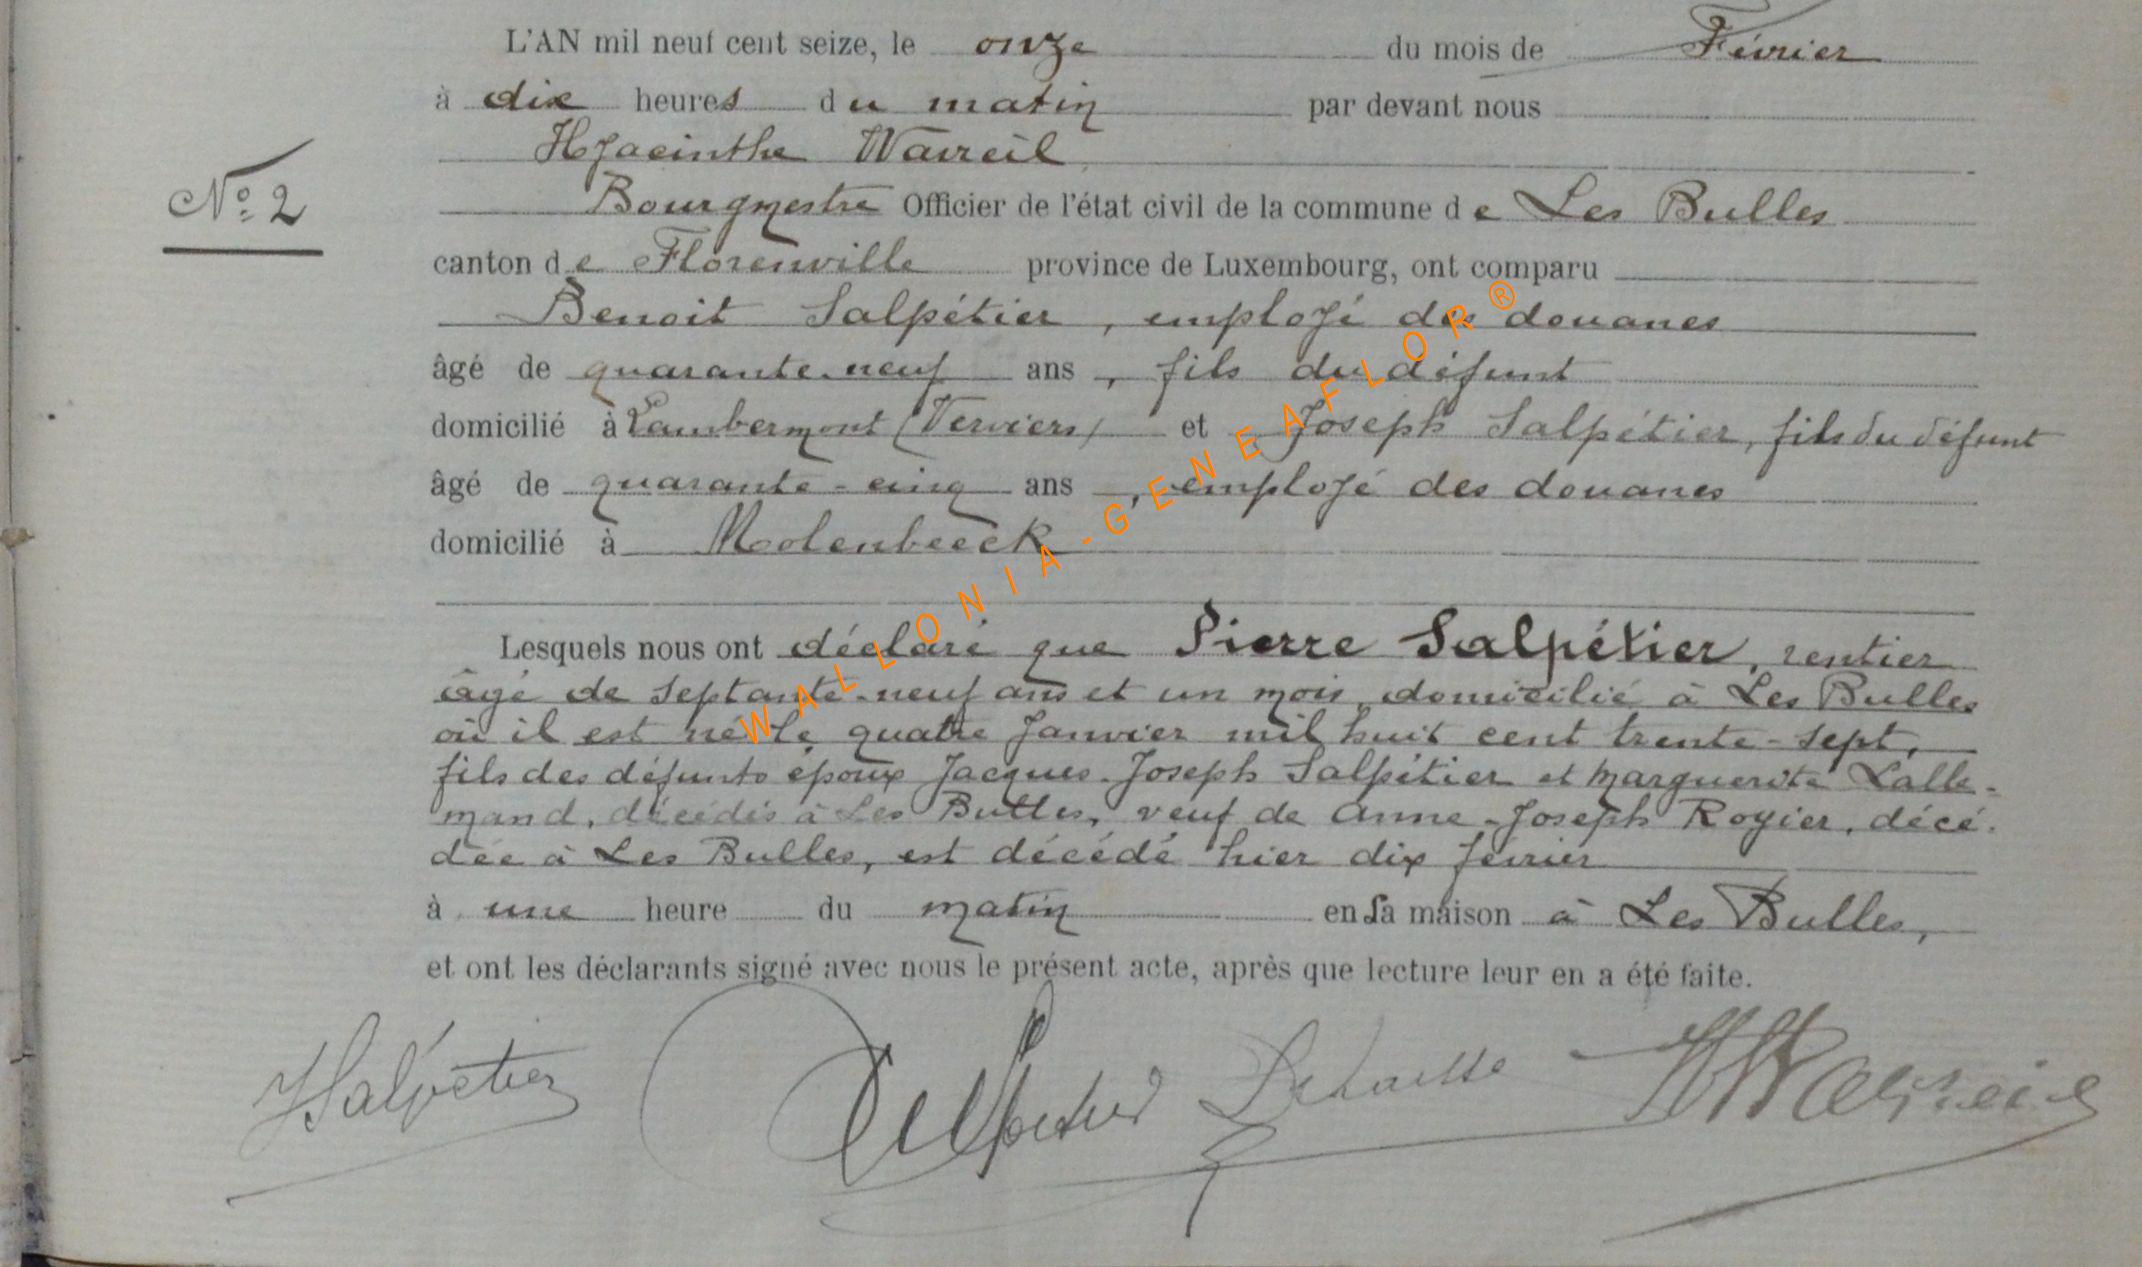 L'AN mil neuf cent seize, le onze du mois de Février
à dix heures du matin par devant nous
Hyacinthe Wavreil
N° 2
Bourgmestre Officier de l'état civil de la commune de Les Bulles
canton de Florenville province de Luxembourg, ont comparu
Benoit Salpétier, employé des douanes
âgé de quarante-neuf ans, fils du défunt
domicilié à Lambermont (Verviers) et Joseph Salpétier, fils du défunt
âgé de quarante-cinq ans, employé des douanes
domicilié à Molenbeeck
Lesquels nous ont déclaré que Pierre Salpétier, rentier
âgé de septante-neuf ans et un mois, domicilié à Les Bulles
où il est né le quatre Janvier mil huit cent trente-sept,
fils des défunts époux Jacques-Joseph Salpétier et Marguerite Lalle-
mand, décédés à Les Bulles, veuf de Anne-Joseph Rogier, décé-
dée à Les Bulles, est décédé hier dix février
à une heure du matin en sa maison à Les Bulles,
et ont les déclarants signé avec nous le présent acte, après que lecture leur en a été faite.
JSalpétier Salpetier HWavreil
WALLONIA-GENEAFLOR®